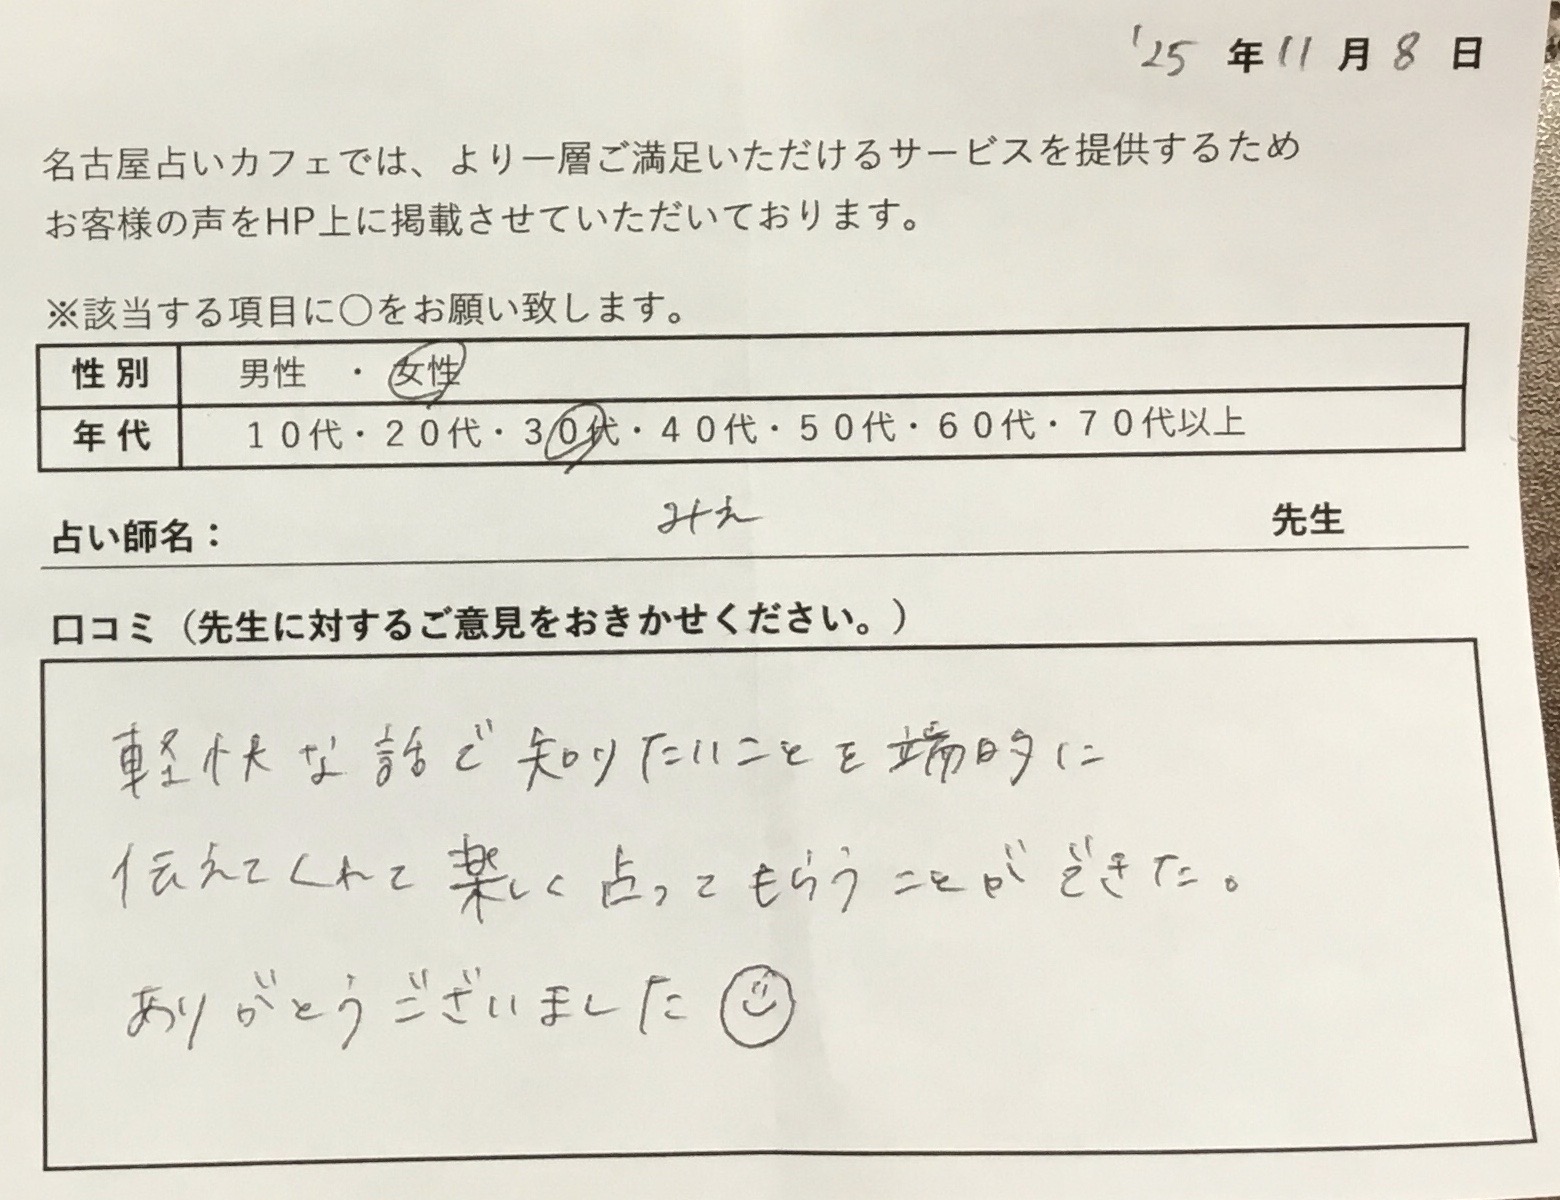 '25 年 11 月 8 日
名古屋占いカフェでは、より一層ご満足いただけるサービスを提供するため
お客様の声をHP上に掲載させていただいております。
※該当する項目に〇をお願い致します。
性別 男性 ・ 女性
年代 10代・20代・30代・40代・50代・60代・70代以上
占い師名： みえ 先生
口コミ（先生に対するご意見をおきかせください。）
軽快な話で知りたいことを端的に
伝えてくれて楽しく占ってもらうことができた。
ありがとうございました